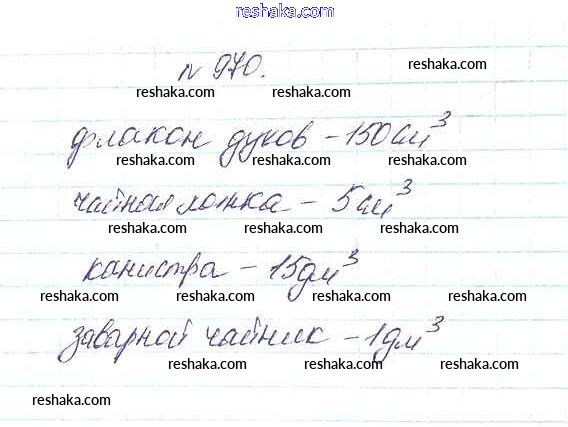 reshaka.com
№ 970.
reshaka.com reshaka.com reshaka.com
флакон духов – 150 см³
reshaka.com reshaka.com reshaka.com
чайная ложка – 5 см³
reshaka.com reshaka.com reshaka.com
канистра – 15 дм³
reshaka.com reshaka.com reshaka.com
заварной чайник – 1 дм³
reshaka.com reshaka.com reshaka.com
reshaka.com